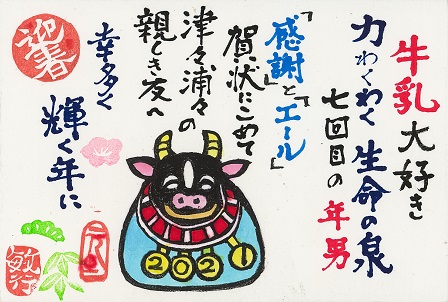 牛乳大好き
力わくわく生命の泉
七回目の年男
「感謝」と「エール」
賀状にこめて
津々浦々の
親しき友へ
幸多く
輝く年に
迎春
2021
元旦
敏行